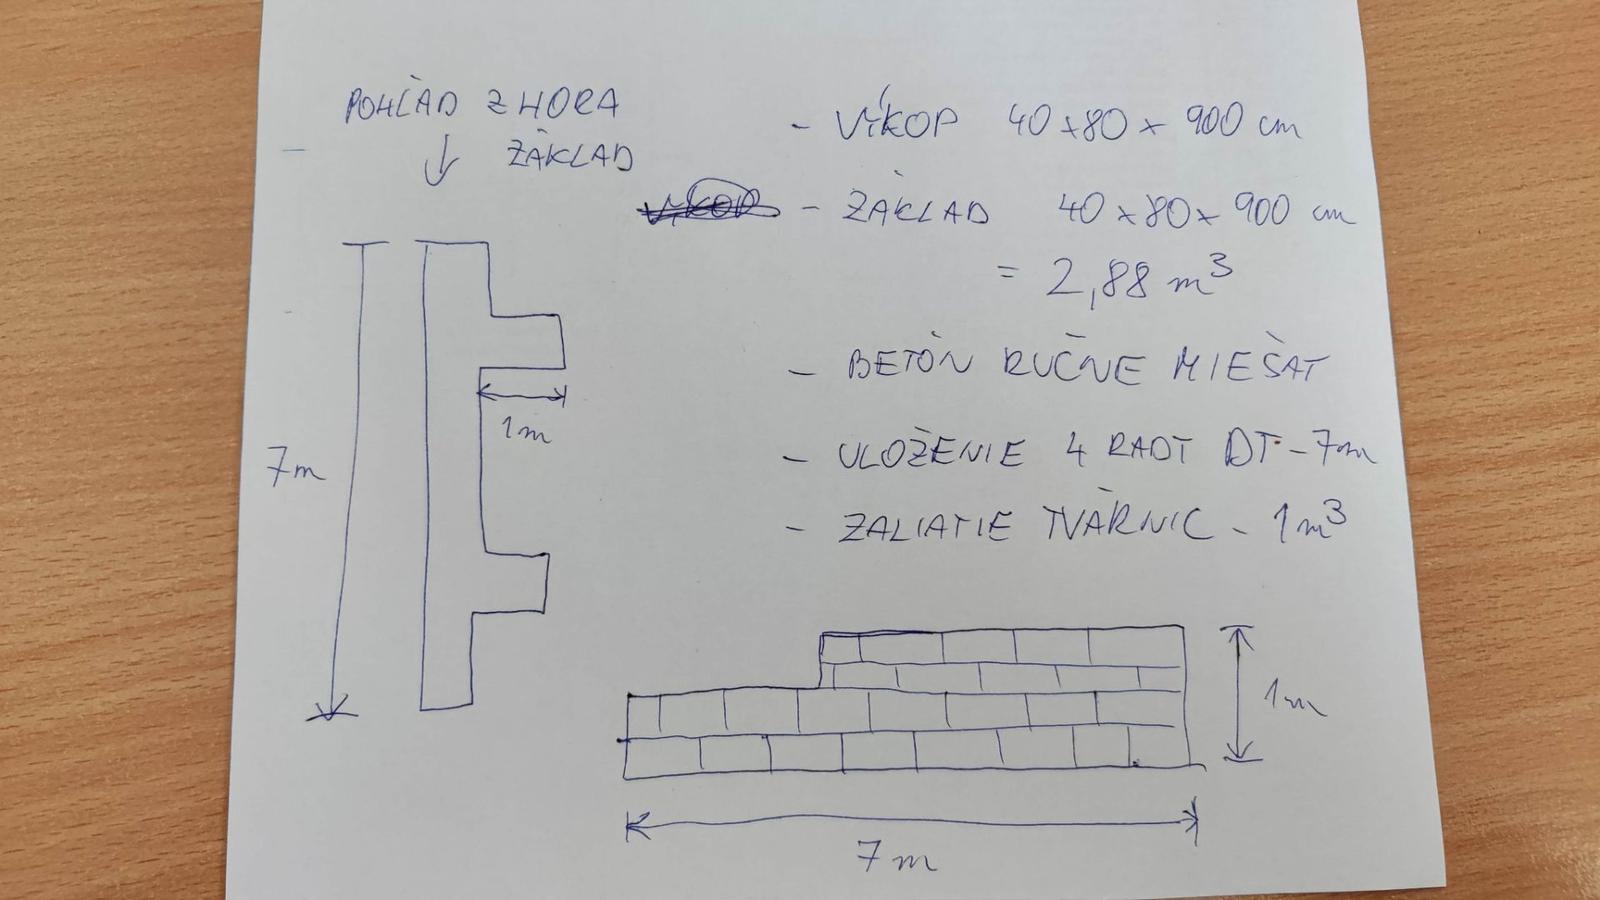 POHĽAD ZHORA
ZÁKLAD
- VÍKOP 40x80x900 cm
- ZÁKLAD 40x80x900 cm
= 2,88 m³
- BETÓN RUČNE MIEŠAT
- ULOŽENIE 4 RADT DT-7m
- ZALIATIE TVÁRNIC - 1m³
1m
7m
1m
7m